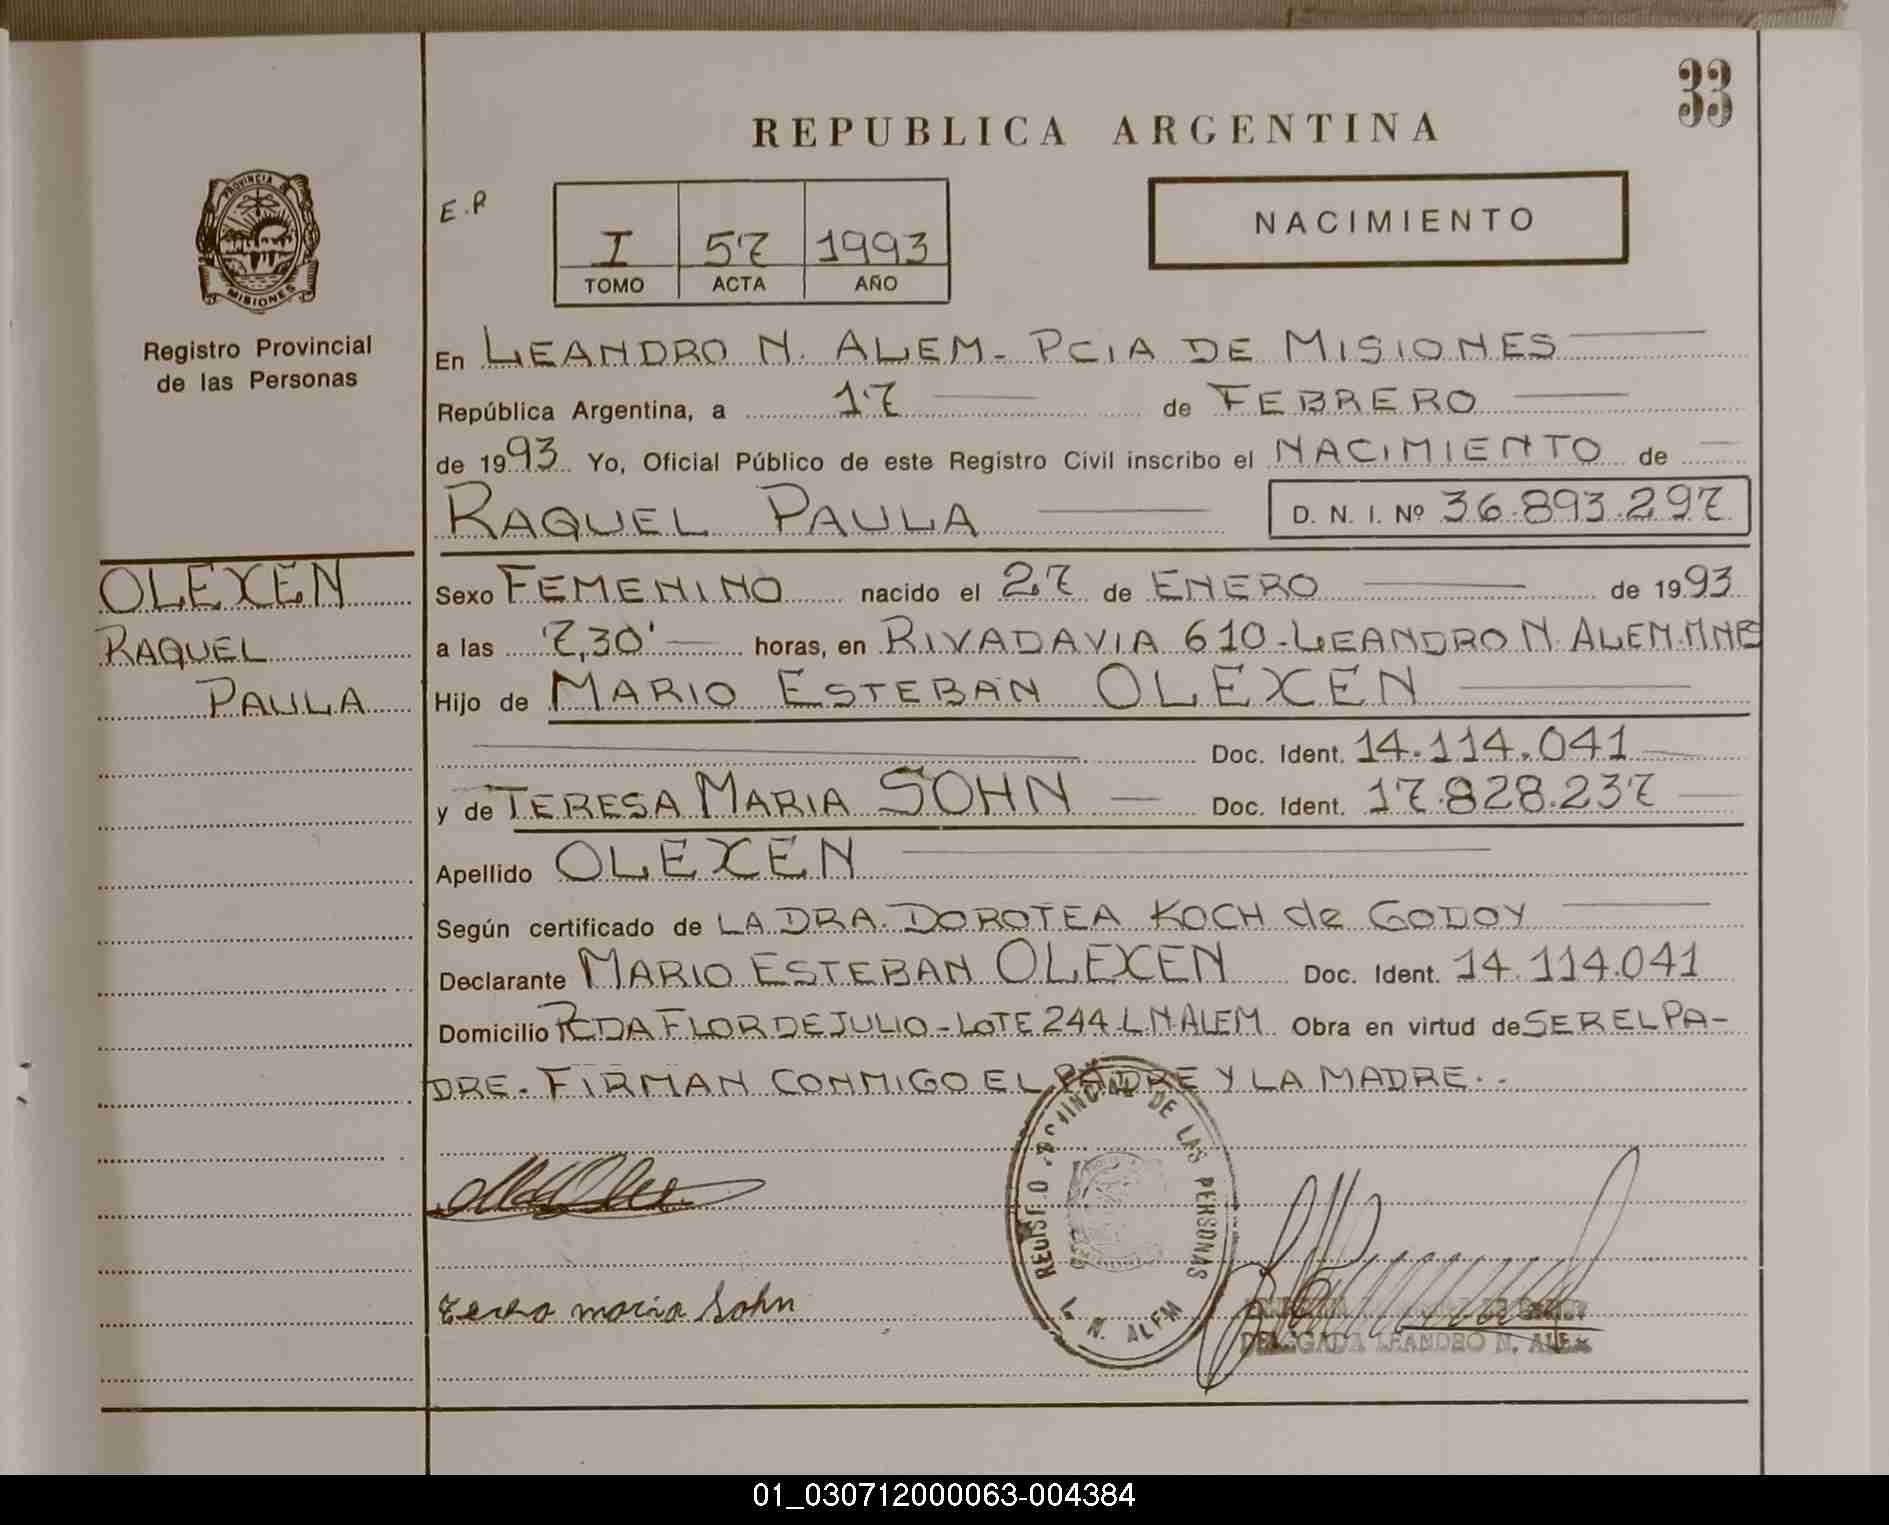 33
REPUBLICA ARGENTINA
PROVINCIA DE
MISIONES
Registro Provincial
de las Personas
E.P
I 57 1993
TOMO ACTA AÑO
NACIMIENTO
En LEANDRO N. ALEM - PCIA DE MISIONES
República Argentina, a 17 de FEBRERO
de 1993 Yo, Oficial Público de este Registro Civil inscribo el NACIMIENTO de
RAQUEL PAULA D. N. I. Nº 36.893.297
OLEXEN
RAQUEL
PAULA
Sexo FEMENINO nacido el 27 de ENERO de 1993
a las 7,30' horas, en RIVADAVIA 610 - LEANDRO N. ALEM. MNES
Hijo de MARIO ESTEBAN OLEXEN
Doc. Ident. 14.114.041
y de TERESA MARIA SOHN Doc. Ident. 17.828.237
Apellido OLEXEN
Según certificado de LA DRA. DOROTEA KOCH de GODOY
Declarante MARIO ESTEBAN OLEXEN Doc. Ident. 14.114.041
Domicilio PCDA FLOR DE JULIO - LOTE 244 - L.N.ALEM Obra en virtud de SER EL PA-
DRE. FIRMAN CONMIGO EL PADRE Y LA MADRE.-
REGISTRO PROVINCIAL DE LAS PERSONAS
L. N. ALEM
Teresa maria Sohn
DELEGADA LEANDRO N. ALEM
01_030712000063-004384